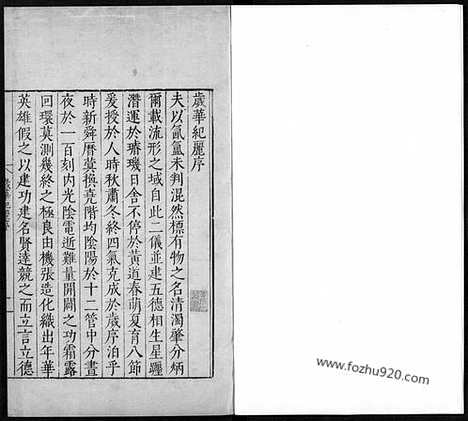 歲華紀麗序
夫以氤氳未判混然標有物之名清濁肇分炳
爾載流形之域自此二儀並建五德相生星躔
潛運於璿璣日舍不停於黃道春萌夏育八節
爰授於人時秋肅冬終四氣克成於歲序洎乎
時新舜曆蓂換堯階均陰陽於十二管中分晝
夜於一百刻內光陰電逝難量開闢之功霜露
回環莫測幾終之極良由機張造化織出年華
英雄假之以建功建名賢達競之而立言立德
www.fozhu920.com